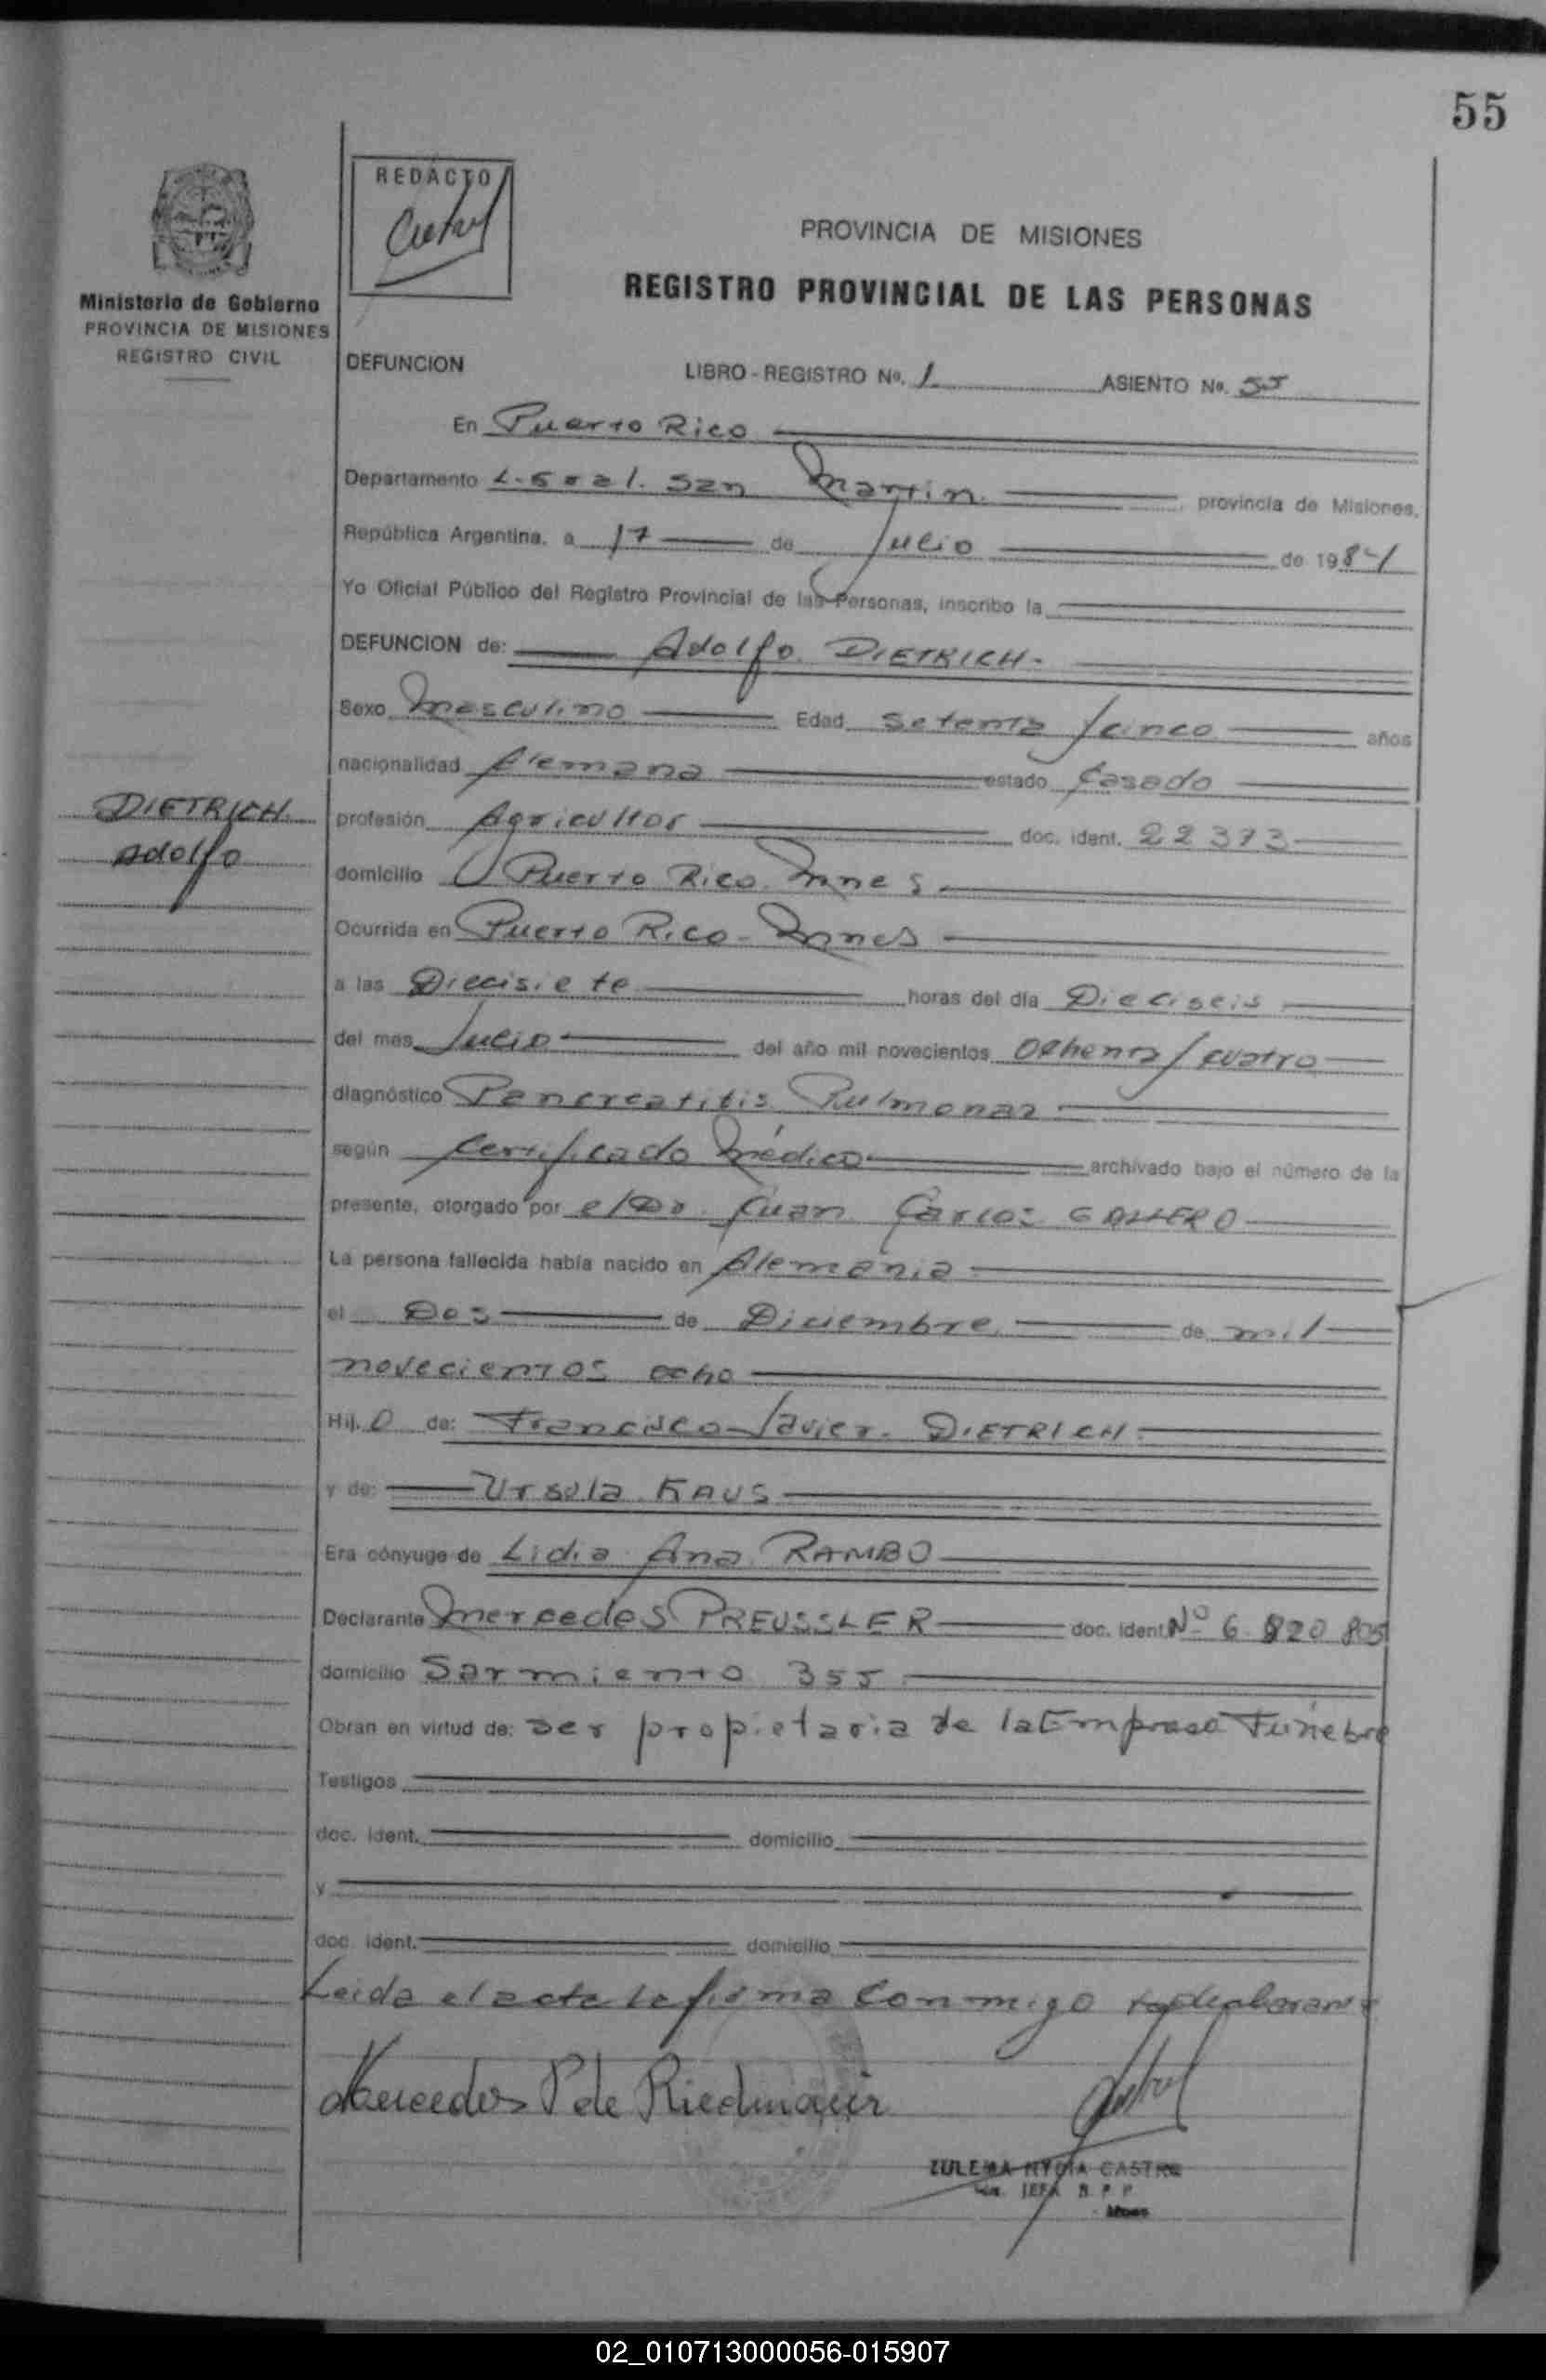 55
REDACTO
PROVINCIA DE MISIONES
REGISTRO PROVINCIAL DE LAS PERSONAS
Ministerio de Gobierno
PROVINCIA DE MISIONES
REGISTRO CIVIL
DEFUNCION LIBRO - REGISTRO Nº. 1 ASIENTO Nº. 55
En Puerto Rico
Departamento L. Gral. San Martin. provincia de Misiones,
República Argentina, a 17 de Julio de 1984
Yo Oficial Público del Registro Provincial de las Personas, inscribo la
DEFUNCION de: Adolfo DIETRICH.
Sexo Masculino Edad setenta / cinco años
nacionalidad Alemana estado Casado
DIETRICH
Adolfo
profesión Agricultor doc. ident. 22373
domicilio Puerto Rico Mnes
Ocurrida en Puerto Rico - Mnes
a las Diecisiete horas del día Dieciseis
del mes Julio del año mil novecientos Ochenta / cuatro
diagnóstico Pancreatitis Pulmonar
según certificado Médico archivado bajo el número de la
presente, otorgado por el Dr. Juan Carlos
La persona fallecida había nacido en Alemania
el Dos de Diciembre de mil
novecientos ocho
Hij. o de: Francisco Javier DIETRICH
y de: Ursula KAUS
Era cónyuge de Lidia Ana RAMBO
Declarante Mercedes PREUSSLER doc. ident. Nº 6.820.805
domicilio Sarmiento 355
Obran en virtud de: ser propietaria de la Empresa Fúnebre
Testigos
doc. ident. domicilio
y
doc. ident. domicilio
Leida el acta la firma conmigo
Mercedes P de Riedmaier
ZULEMA NYDIA CASTRO
JEFA R. P. P.
Mnes
02_010713000056-015907